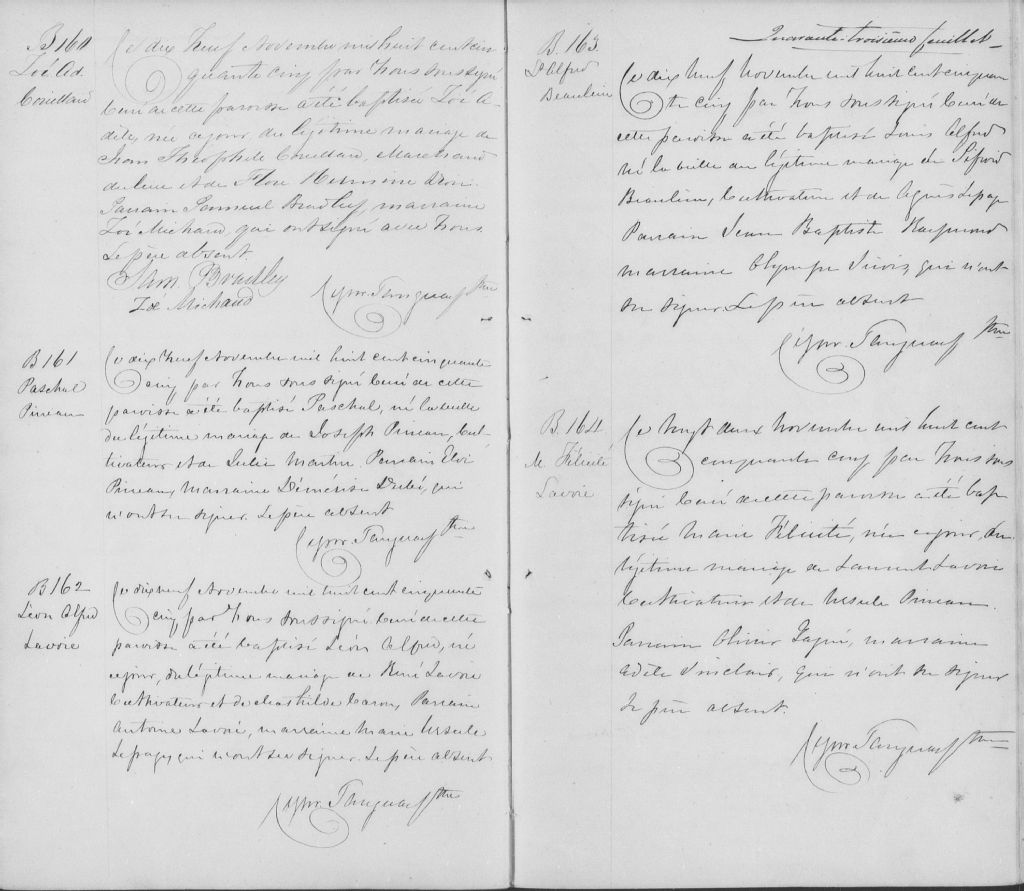 B 160
Zoé Ad.
Couillard
Ce dix neuf Novembre mil huit cent cin
quante cinq par Nous soussigné
Curé de cette paroisse a été baptisée Zoé A-
dèle, née ce jour du légitime mariage de
Jean Théophile Couillard, Marchand
du lieu et de Flore Hermine Dion.
Parrain Samuel Bradley, marraine
Zoé Michaud, qui ont signé avec Nous.
Le père absent.
Sam Bradley
Zoé Michaud
Cypr Tanguay Ptre
B 161
Paschal
Pineau
Ce dix Neuf Novembre mil huit cent cinquante
cinq par Nous soussigné Curé de cette
paroisse a été baptisé Paschal, né la veille
du légitime mariage de Joseph Pineau, Cul-
tivateur et de Julie Parrain
Pineau, Marraine Démérise Dubé, qui
n'ont su signer. Le père absent
Cypr Tanguay Ptre
B 162
Léon Alfred
Lavoie
Ce dix neuf Novembre mil huit cent cinquante
Cinq par Nous soussigné Curé de cette
paroisse a été baptisé Léon Alfred, né
ce jour, du légitime mariage de René Lavoie
Cultivateur et de Clothilde Caron, Parrain
Antoine Lavoie, marraine Marie Ursule
Lepage qui n'ont su signer. Le père absent
Cypr Tanguay Ptre
Quarante-troisième feuillet
B. 163
Ls Alfred
Beaulieu
Ce dix neuf Novembre mil huit cent cinquan
te cinq par Nous soussigné Curé de
cette paroisse a été baptisé Louis Alfred
né la veille du légitime mariage de Sifroid
Beaulieu, Cultivateur et de Agnès Lepage
Parrain Jean Baptiste Raymond
marraine Olympe qui n'ont
su signer. Le père absent
Cypr Tanguay Ptre
B. 164
M. Félicité
Lavoie
Ce Vingt deux Novembre mil huit cent
cinquante cinq par Nous sous
signé Curé de cette paroisse a été bap
tisée Marie Félicité, née ce jour, du
légitime mariage de Laurent Lavoie
Cultivateur et de Ursule Pineau.
Parrain Olivier marraine
Adèle Sinclair, qui n'ont su signer
Le père absent.
Cypr Tanguay Ptre